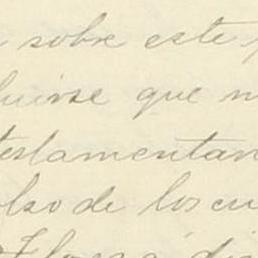 sobre este
luirse que
testamentar
olso de los cu